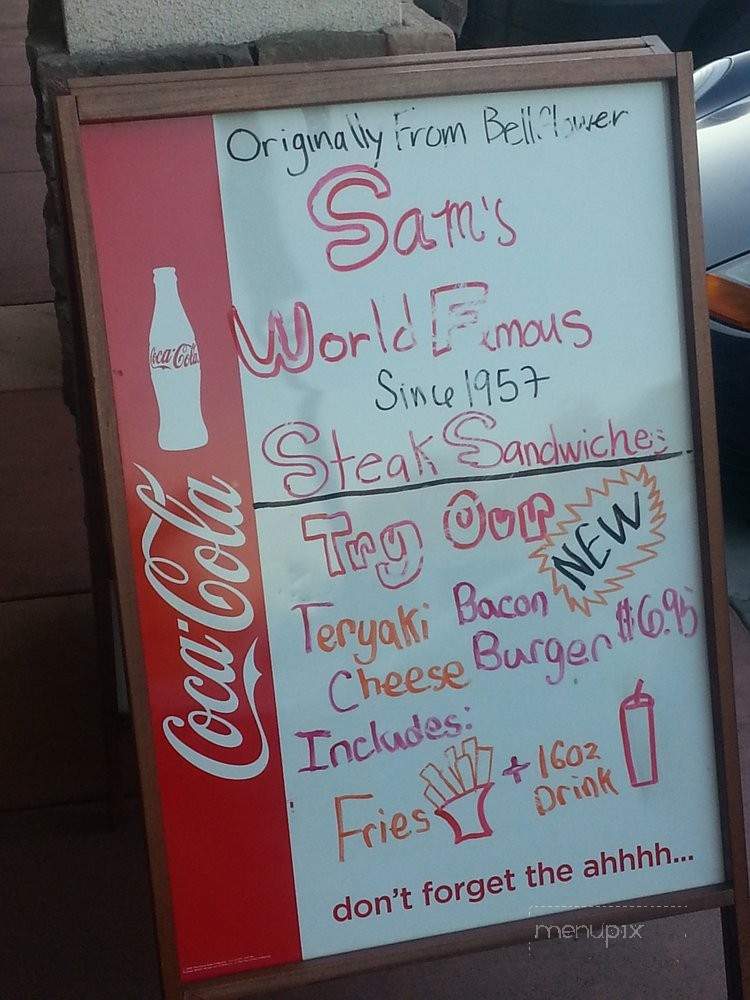 Originally From Bellflower
Sam's
World Famous
Since 1957
Steak Sandwiches
Try Our
NEW
Teryaki Bacon
Cheese Burger $6.95
Includes:
Fries + 16oz
Drink
don't forget the ahhhh...
Coca-Cola
Coca-Cola
menupix